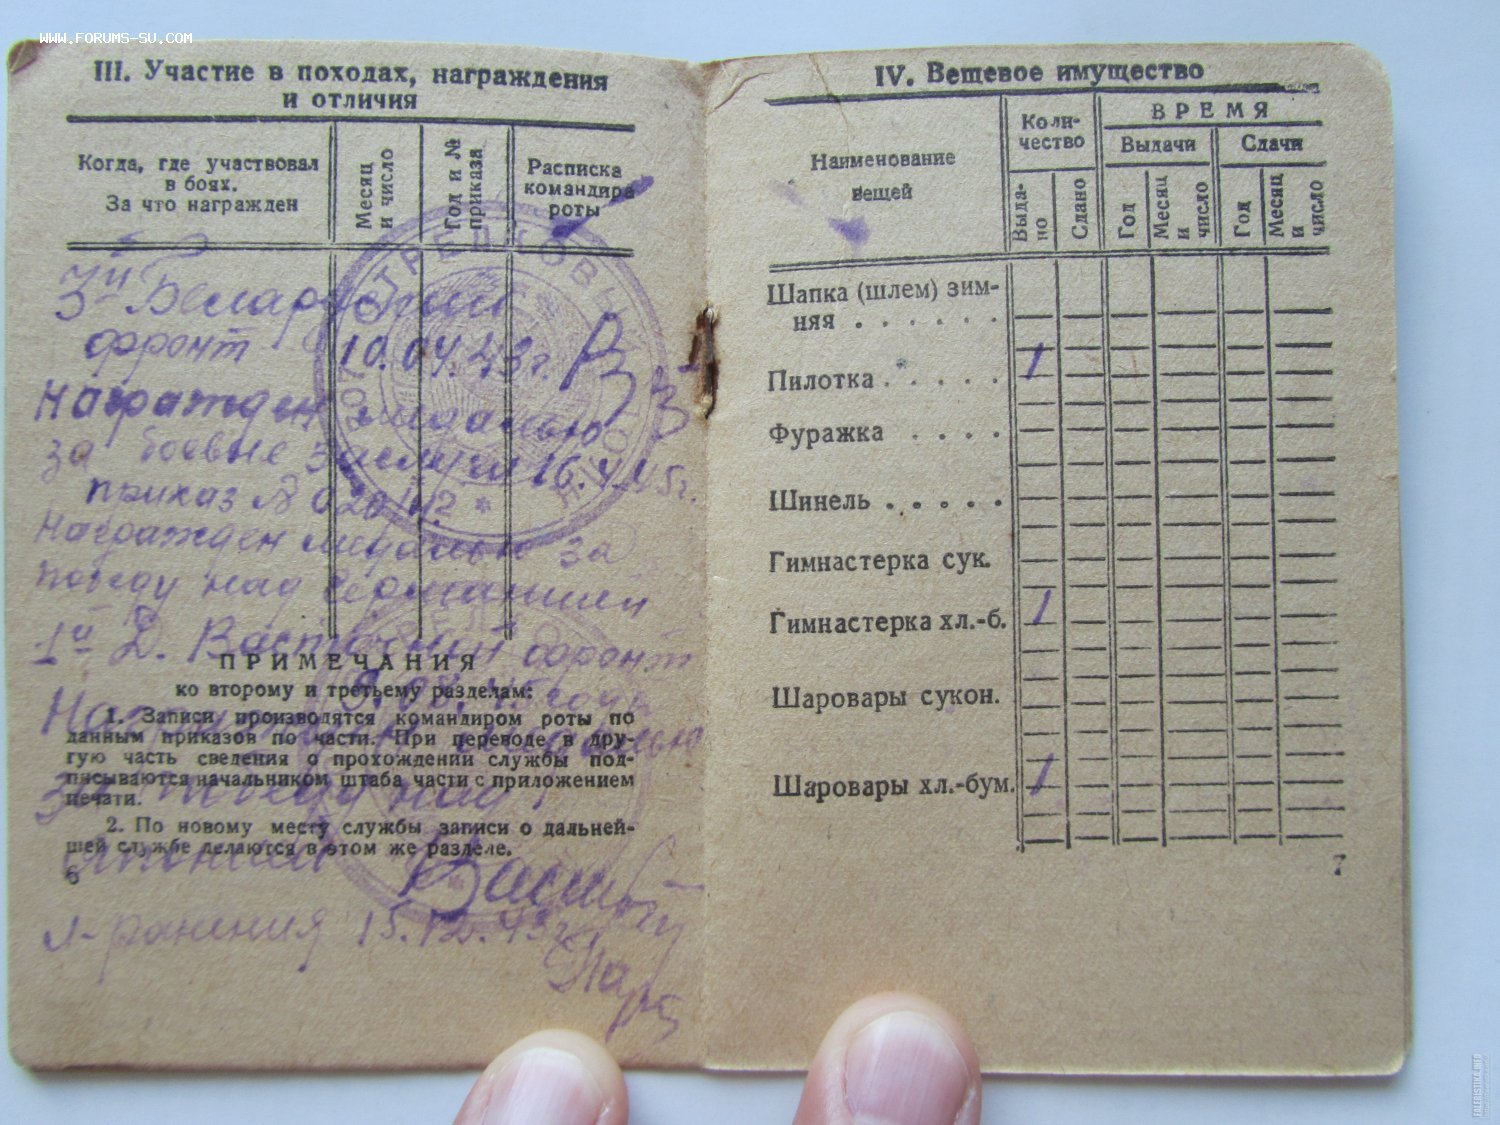 WWW.FORUMS-SU.COM
III. Участие в походах, награждения
и отличия
Когда, где участвовал
в боях.
За что награжден
Месяц
и число
Год и №
приказа
Расписка
командира
роты
3й Беларуский
фронт 10.04.43г.
Награжден медалью
за боевые заслуги 16.4.45г.
приказ №
Награжден медалью за
победу над Германией
1й Д. Васточный фронт
ПРИМЕЧАНИЯ
ко второму и третьему разделам:
9.08.45
1. Записи производятся командиром роты по
данным приказов по части. При переводе в дру-
гую часть сведения о прохождении службы под-
писываются начальником штаба части с приложением
печати.
Награжден медалью
за победу над
Японией
2. По новому месту службы записи о дальней-
шей службе делаются в этом же разделе.
6
ранения 15.12.43г.
IV. Вещевое имущество
Наименование
вещей
Коли-
чество
ВРЕМЯ
Выдачи
Сдачи
Выда-
но
Сдано
Год
Месяц
и
число
Год
Месяц
и
число
Шапка (шлем) зим-
няя . . . . . .
Пилотка . . . . . 1
Фуражка . . . .
Шинель . . . . .
Гимнастерка сук.
Гимнастерка хл.-б. 1
Шаровары сукон.
Шаровары хл.-бум. 1
7
FALERISTIKA.INFO